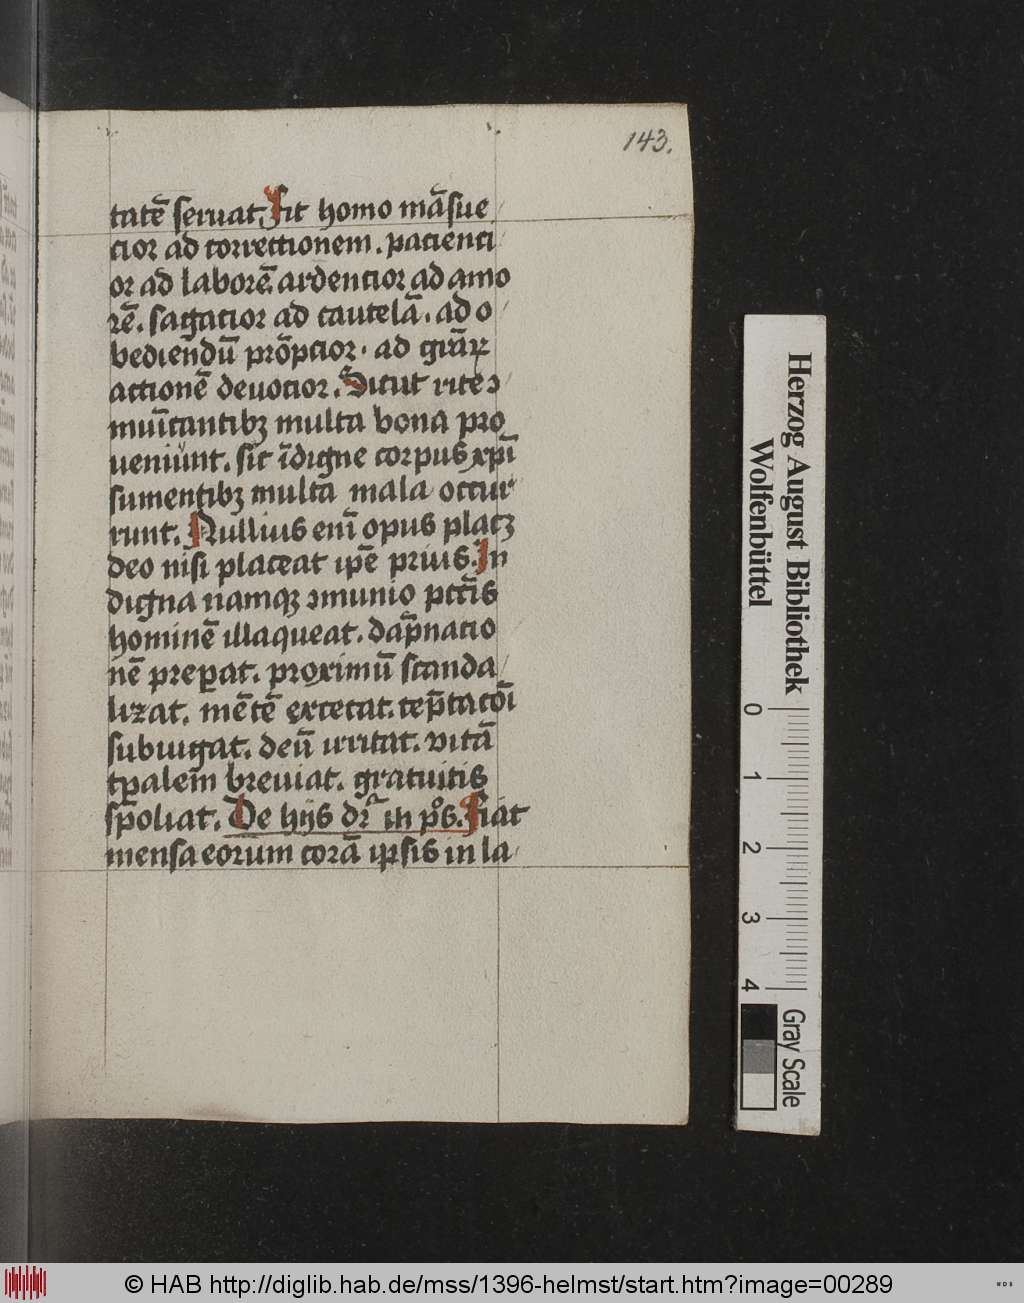 143.
tatē seruat. Fit homo māsue
cior ad correctionem. pacienci
or ad laborē ardencior ad amo
rē. sagacior ad cautelā. ad o
bediendū prōpcior. ad grāꝝ
actionē deuocior. Sicut rite ɔ
muīcantibꝫ multa bona pro
ueniunt. sic īdigne corpus xp̄i
sumentibꝫ multa mala occur
runt. Nullius enī opus placꝫ
deo nisi placeat ip̄e prius. In
digna namqꝫ ɔmunio pcc̄is
hominē illaqueat. dāpnacio
nē preꝑat. proximū scanda
lizat. mētē excecat. tēptacōī
subiugat. deū irritat. vitā
tꝑalem breuiat. gratuitis
sp̄oliat. De hijs dr̄ in pͦs. Fiat
mensa eorum corā ip̄sis in la
Herzog August Bibliothek
Wolfenbüttel
0 1 2 3 4
Gray Scale
© HAB http://diglib.hab.de/mss/1396-helmst/start.htm?image=00289
WDB